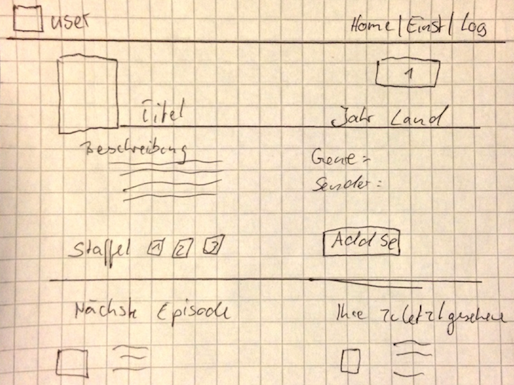 user Home/Einst/Log
1
Titel Jahr Land
Beschreibung
Genre:
Sender:
Staffel 1 2 3 Add Se
Nächste Episode Ihre zuletzt gesehene